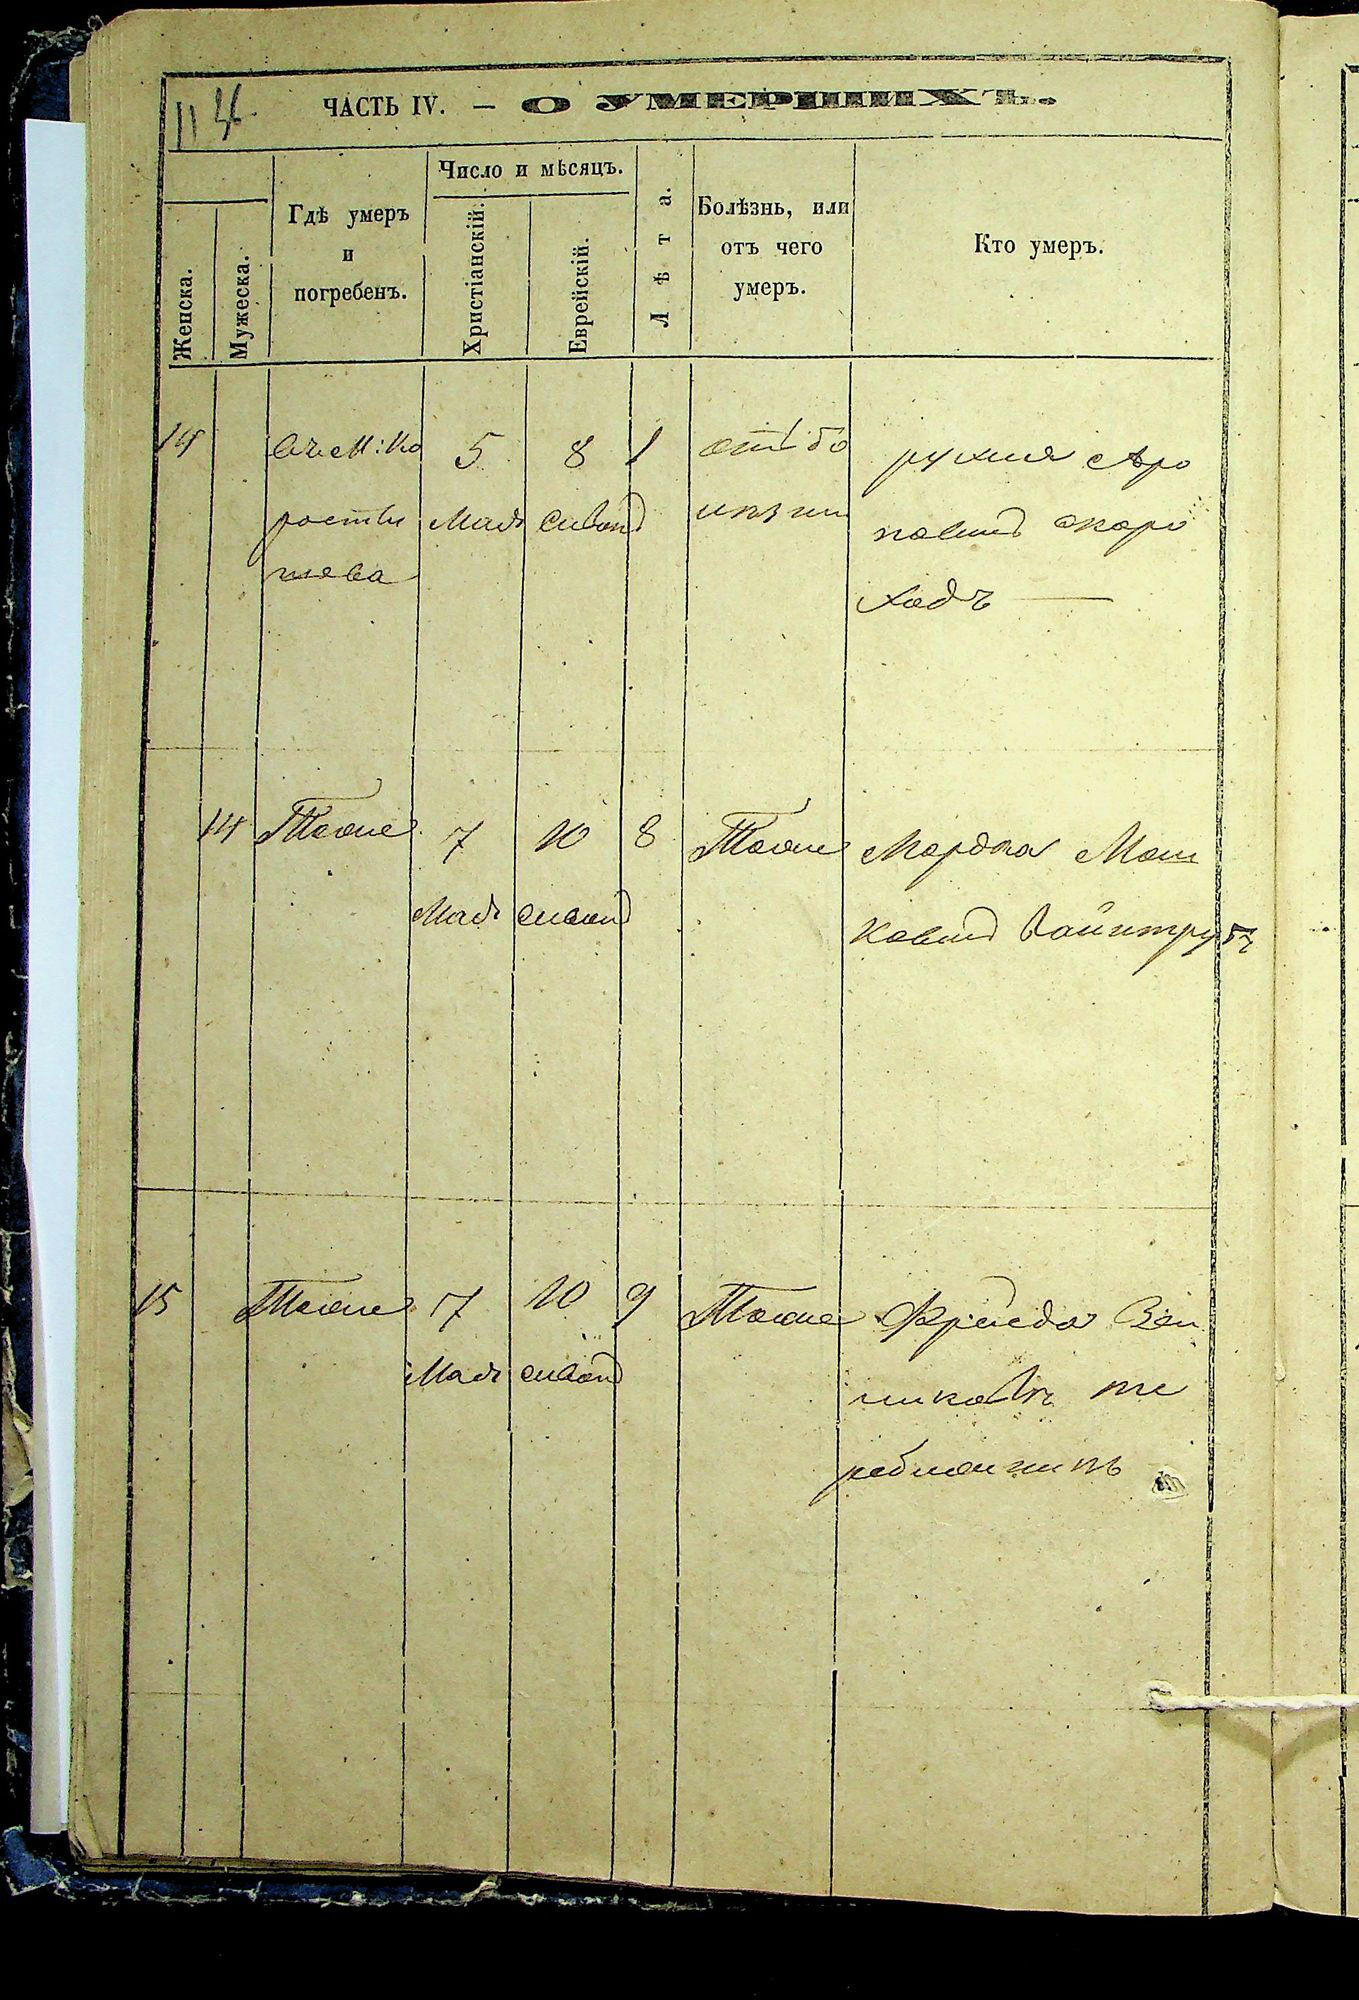 ЧАСТЬ IV. — О УМЕРШИХЪ.
Женска.
Мужеска.
Гдѣ умеръ
и
погребенъ.
Число и мѣсяцъ.
Христіанскій.
Еврейскій.
Лѣта.
Болѣзнь, или
отъ чего
умеръ.
Кто умеръ.
14
въ м: Ко
росты
шева
5
Мая
8
сиван
1
отъ бо
лѣзни
рухля Аро
новна скоро
ходъ —
14
Тоже
7
Мая
10
сиван
8
Тоже
Мордко Мош
ковичъ Вайнтрубъ
15
Тоже
7
Мая
10
сиван
9
Тоже
Фрейда Зей